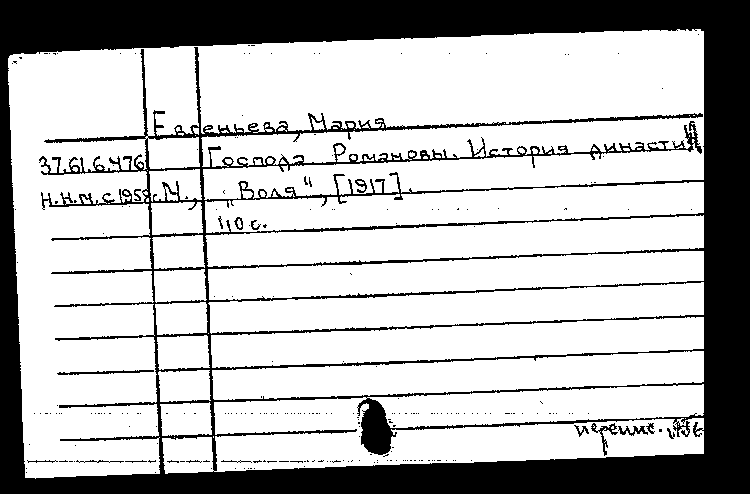 Евгеньева, Мария
37.61.6.476 Господа Романовы. История династии
н.н.м.с 1958г. М., „Воля“, [1917].
110 с.
перепис.